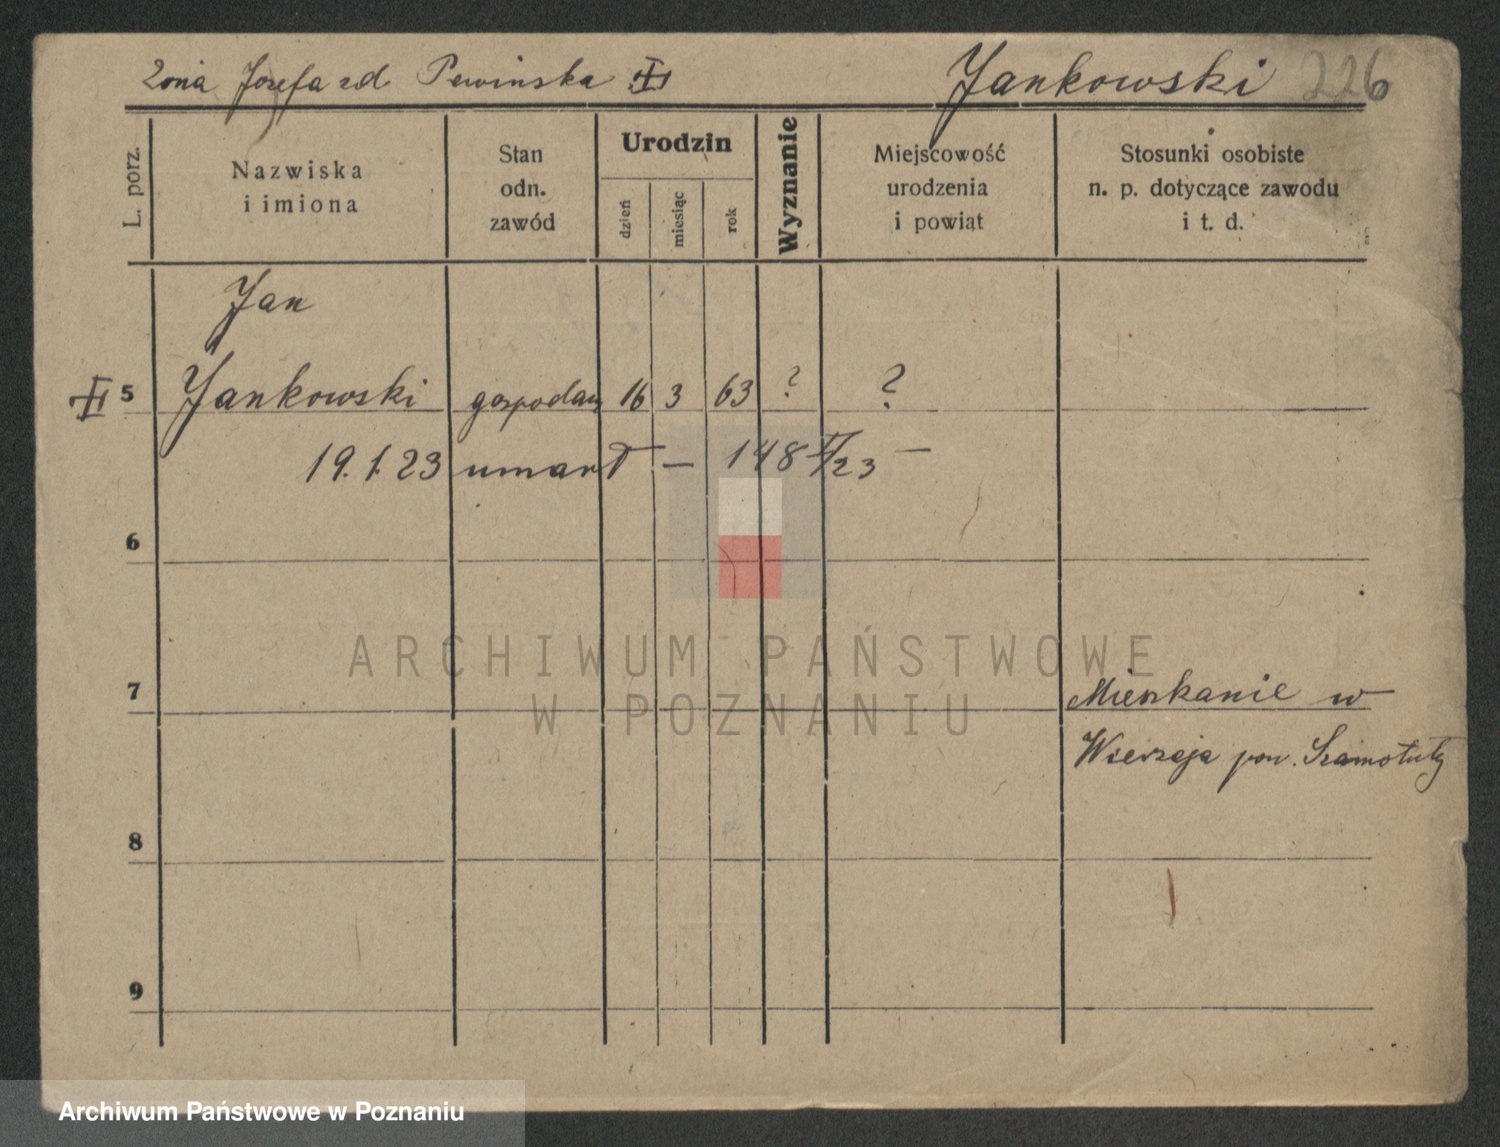 Żona Józefa zd Pewińska
Jankowski 226
L. porz.
Nazwiska
i imiona
Stan
odn.
zawód
Urodzin
dzień
miesiąc
rok
Wyznanie
Miejscowość
urodzenia
i powiat
Stosunki osobiste
n. p. dotyczące zawodu
i t. d.
Jan
5 Jankowski gospodarz 16 3 63 ? ?
19.1.23 umarł — 148 /23 —
6
7 Mieszkanie w
pow. Szamotuły
8
9
ARCHIWUM PAŃSTWOWE
W POZNANIU
Archiwum Państwowe w Poznaniu